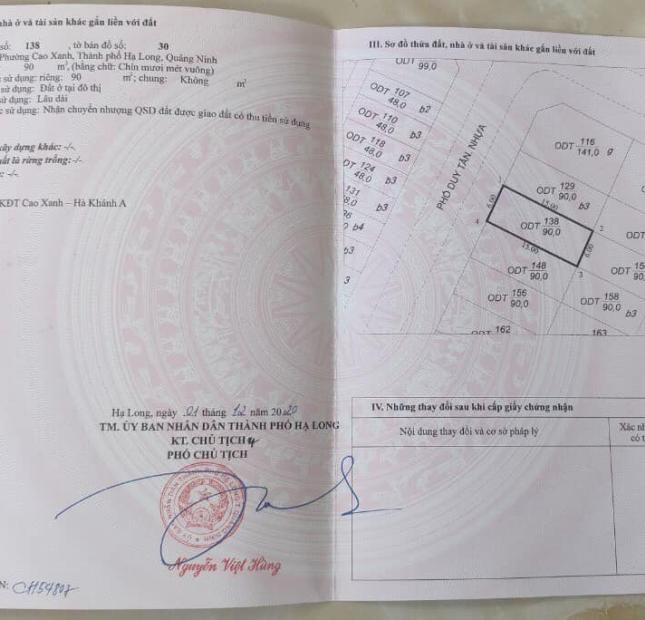 nhà ở và tài sản khác gắn liền với đất
số: 138 , tờ bản đồ số: 30
Phường Cao Xanh, Thành phố Hạ Long, Quảng Ninh
90 m², (bằng chữ: Chín mươi mét vuông)
sử dụng: riêng: 90 m²; chung: Không m²
sử dụng: Đất ở tại đô thị
sử dụng: Lâu dài
sử dụng: Nhận chuyển nhượng QSD đất được giao đất có thu tiền sử dụng
xây dựng khác: -/-
là rừng trồng:-/-
: -/-
KĐT Cao Xanh – Hà Khánh A
Hạ Long, ngày 01 tháng 12 năm 2020
TM. ỦY BAN NHÂN DÂN THÀNH PHỐ HẠ LONG
KT. CHỦ TỊCH
PHÓ CHỦ TỊCH
Nguyễn Việt Hùng
N: CH54807
III. Sơ đồ thửa đất, nhà ở và tài sản khác gắn liền với đất
ODT
99,0
ODT 107
48,0 b2
ODT 110
48,0 b3
ODT 118
48,0 b3
DT 124
48,0 b3
131
8,0 b3
36
0 b4
b3
3
PHỐ DUY TÂN, NHỰA
ODT 116
141,0 g
ODT 129
90,0 b3
1
15.00
6.00
ODT 138
90,0
2
4
15.00
6.00
3
ODT
ODT 148
90,0
ODT 15
90,
ODT 156
90,0
ODT 158
90,0 b3
ODT 162
163
IV. Những thay đổi sau khi cấp giấy chứng nhận
Nội dung thay đổi và cơ sở pháp lý
Xác nh
có t